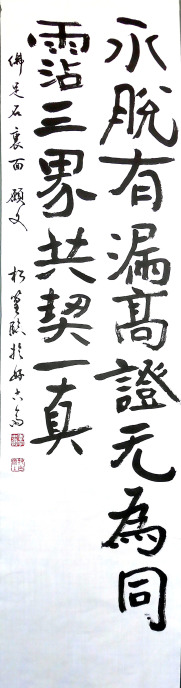 永脱有漏高證无為同
霑三界共契一真
佛足石裏面願文　松篁臨於好古斎